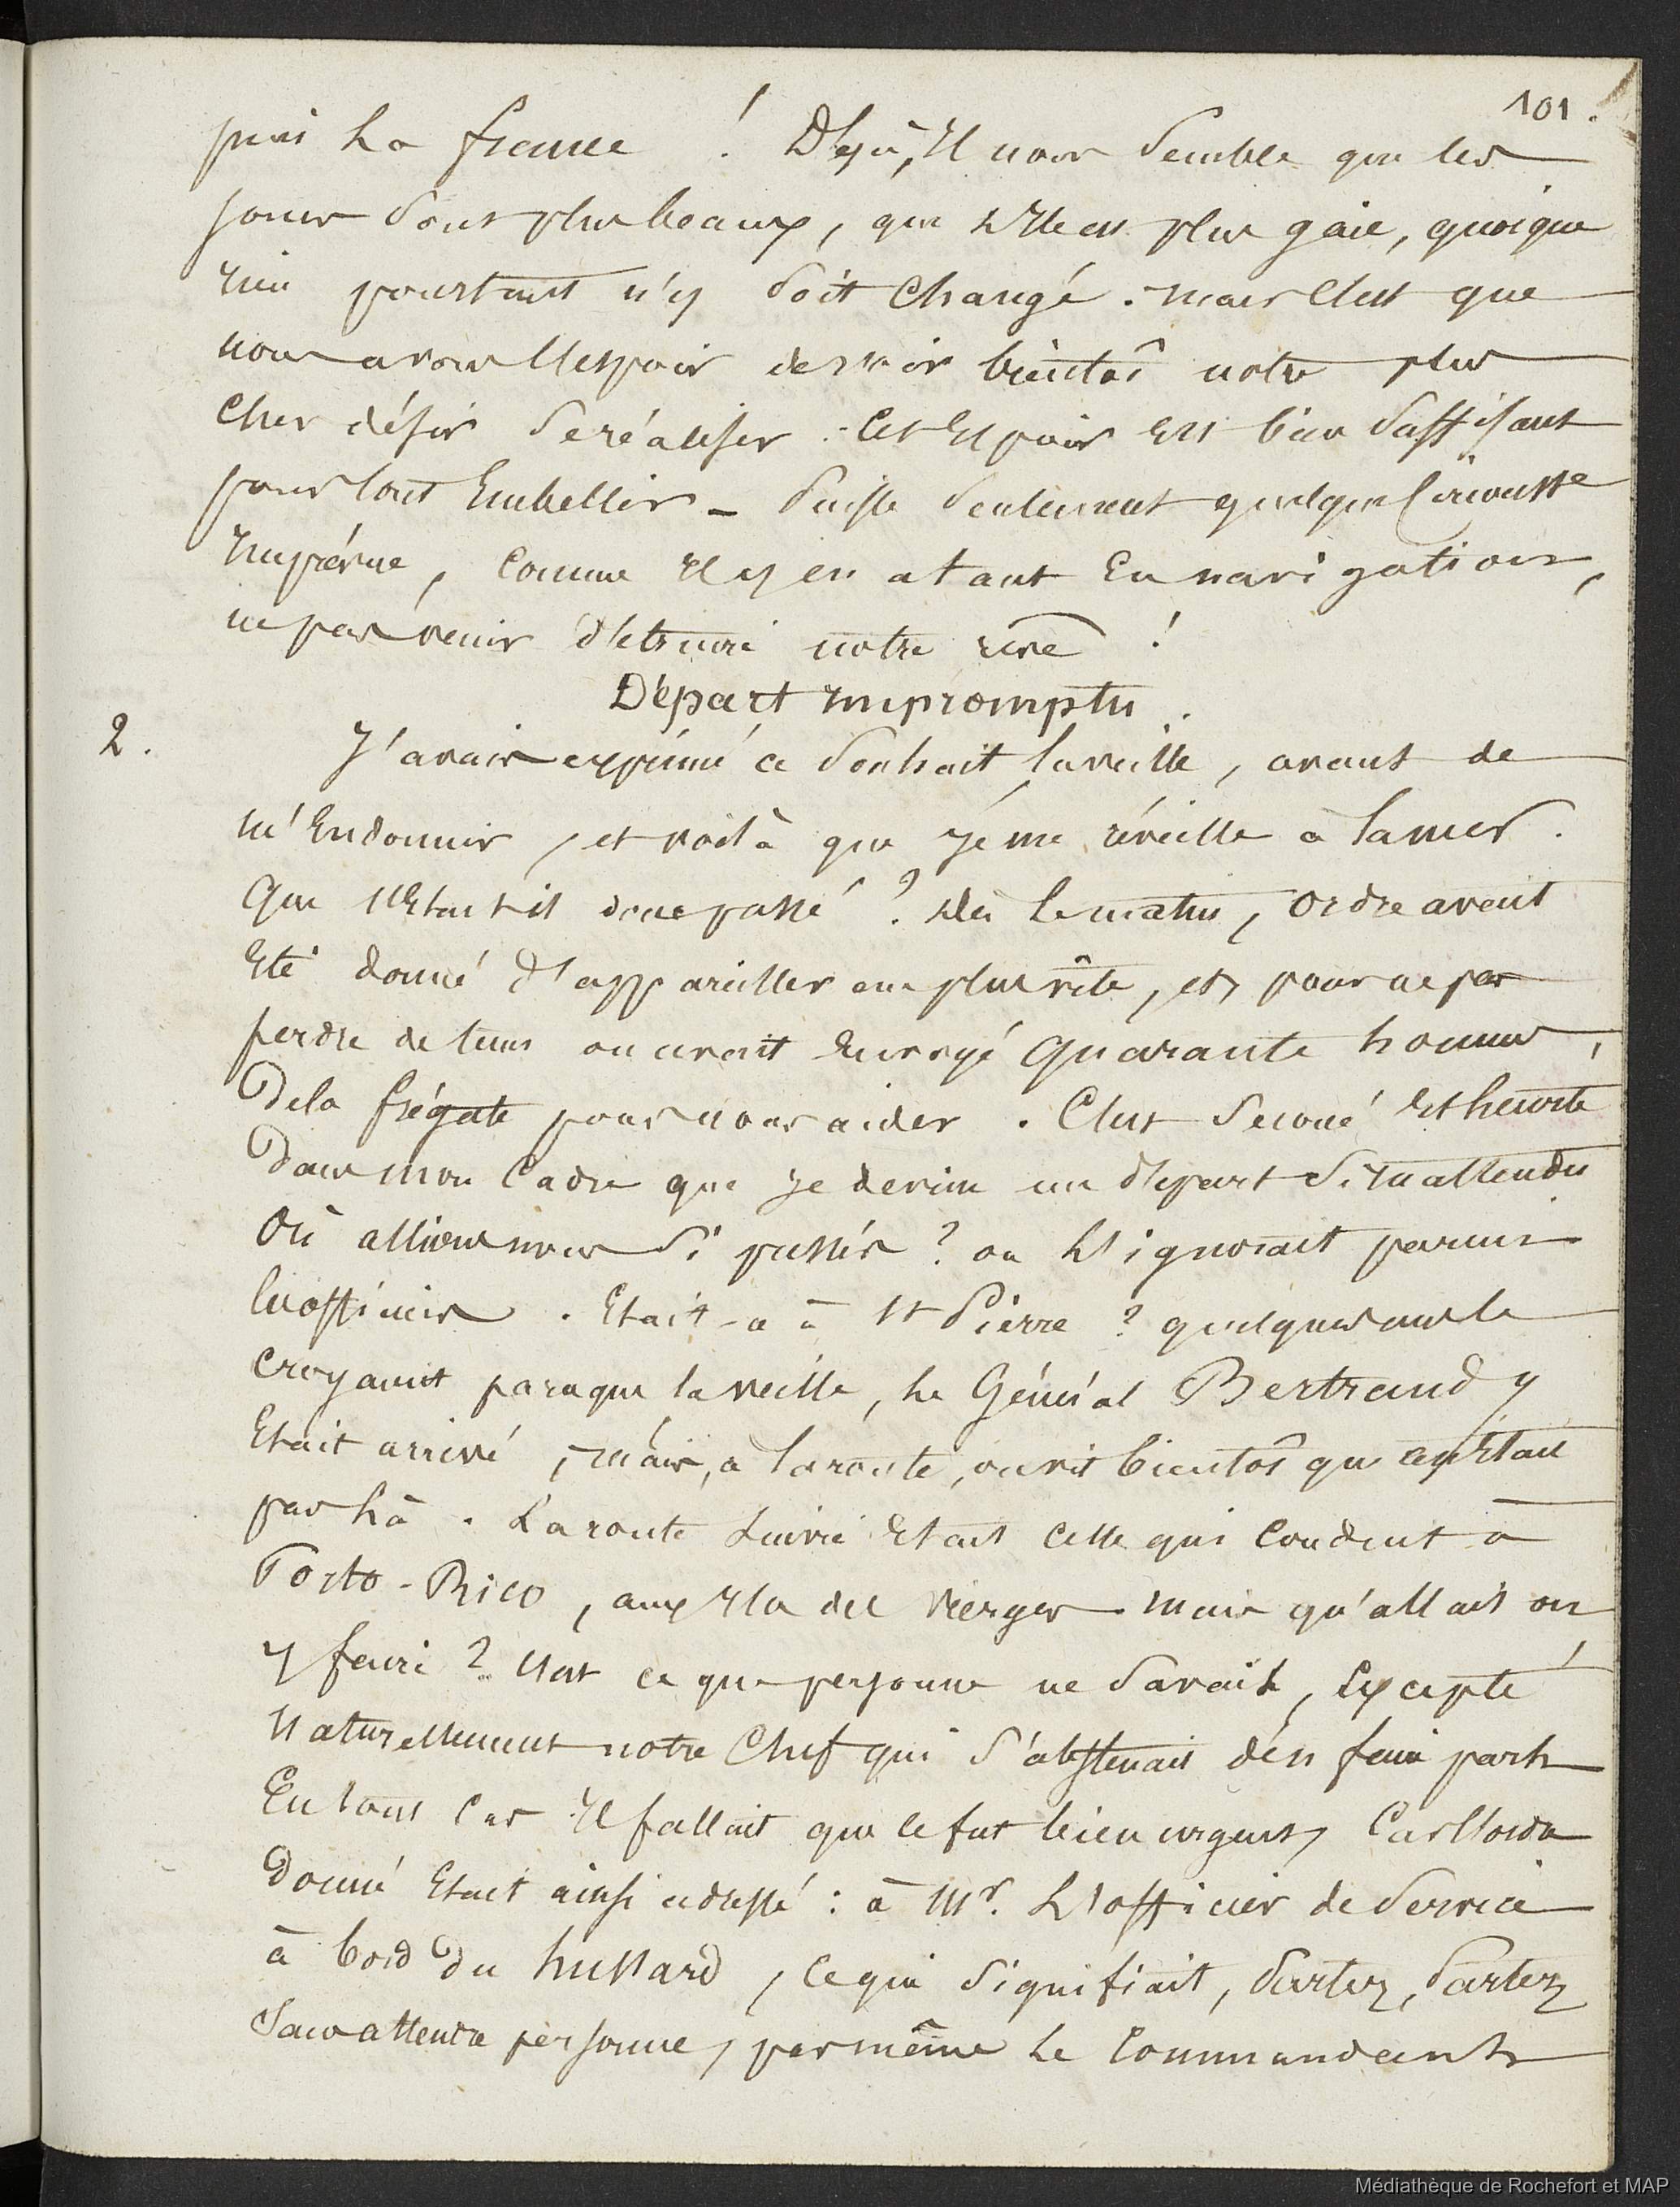 101.
puis la france ! Déjà, Il nous semble que les
jours sont plus beaux, que l'Ile est plus gaie, quoique
rien pourtant n'y soit changé. mais c'est que
nous avons l'espoir de voir bientôt notre plus
cher désir se réaliser. Cet Espoir Est bien suffisant
pour tout Embellir _ Puisse seulement quelque Circonst.e
Imprévue, comme Il y en a tant En navigation,
ne pas venir détruire notre rêve !
Départ Impromptu.
2. J'avais exprimé ce souhait la veille, avant de
m'Endormir, et voilà que je me réveille à la mer.
Que s'Etait-il donc passé ? Dès le matin, ordre avait
Eté donné d'appareiller au plus vite, et, pour ne pas
perdre de tems on avait Envoyé quarante hommes,
de la frégate pour nous aider. C'est secoué Et heurté
dans mon Cadre que je devine un départ si Inattendu
Où allions nous si pressés ? on l'ignorait parmi
les officiers. Etait-ce à St Pierre ? quelques uns le
croyaient parceque la veille, le Général Bertrand y
Etait arrivé, mais, à la route, on vit bientôt que ce n'Etait
pas là. La route suivie Etait celle qui conduit à
Porto-Rico, aux Iles des Vierges mais qu'allait on
y faire ? c'est ce que personne ne savait, Excepté
Naturellement notre Chef qui s'abstenait d'en faire part
En tous cas Il fallait que ce fut bien urgent, car l'ordre
donné Etait ainsi adressé : à Mr. L'officier de service
à bord du hussard, ce qui signifiait, Partez, Partez
Sans attendre personne, pas même le Commandant
Médiathèque de Rochefort et MAP